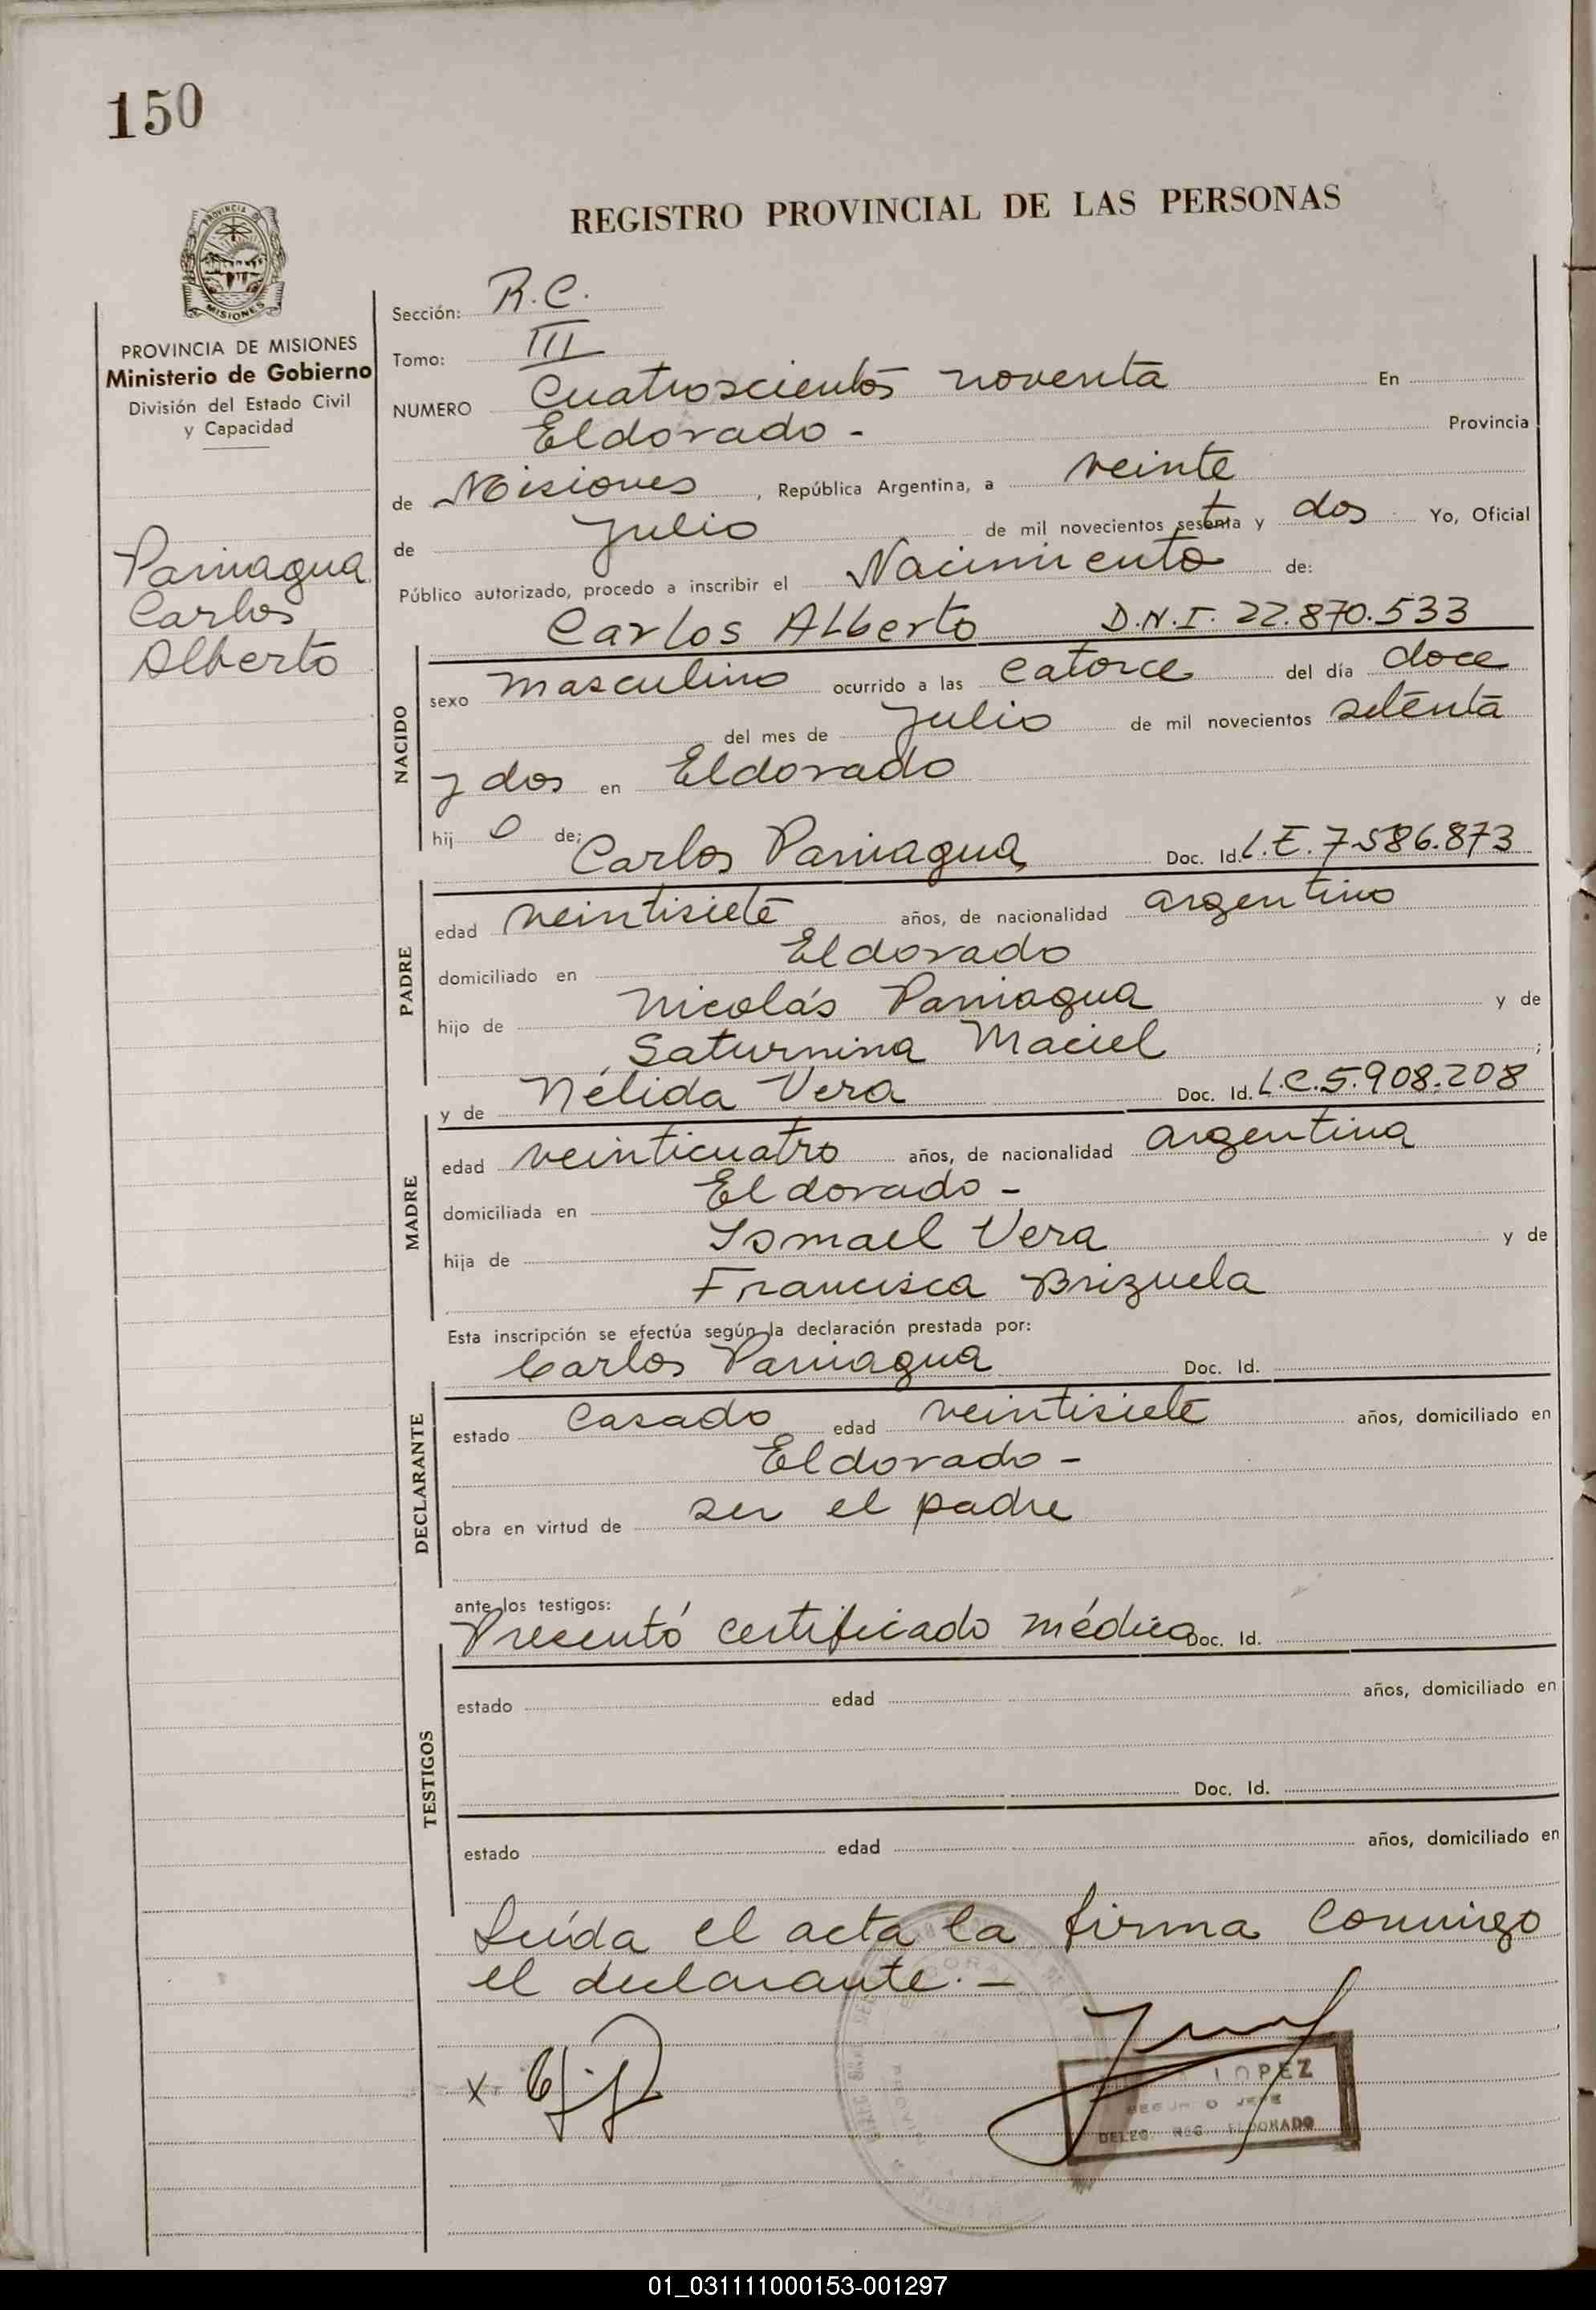 150
REGISTRO PROVINCIAL DE LAS PERSONAS
PROVINCIA DE
MISIONES
PROVINCIA DE MISIONES
Ministerio de Gobierno
División del Estado Civil
y Capacidad
Paniagua
Carlos
Alberto
Sección: R.C.
Tomo: III
NUMERO Cuatroscientos noventa En
Eldorado - Provincia
de Misiones, República Argentina, a veinte
de Julio de mil novecientos setenta y dos Yo, Oficial
Público autorizado, procedo a inscribir el Nacimiento de:
Carlos Alberto D.N.I. 22.870.533
NACIDO
sexo masculino ocurrido a las catorce del día doce
del mes de Julio de mil novecientos setenta
y dos en Eldorado
hij o de; Carlos Paniagua Doc. Id. L.E. 7.586.873
PADRE
edad veintisiete años, de nacionalidad argentino
domiciliado en Eldorado
hijo de Nicolás Paniagua y de
Saturnina Maciel ;
y de Nélida Vera Doc. Id. L.C. 5.908.208
MADRE
edad veinticuatro años, de nacionalidad argentina
domiciliada en Eldorado -
hija de Ismael Vera y de
Francisca Brizuela
Esta inscripción se efectúa según la declaración prestada por:
Carlos Paniagua Doc. Id.
DECLARANTE
estado casado edad veintisiete años, domiciliado en
Eldorado -
obra en virtud de ser el padre
ante los testigos:
Presentó certificado médico Doc. Id.
TESTIGOS
estado edad años, domiciliado en
Doc. Id.
estado edad años, domiciliado en
Leída el acta la firma conmigo
el declarante. -
X
LOPEZ
JEFE
DELEG. REG. ELDORADO
01_031111000153-001297